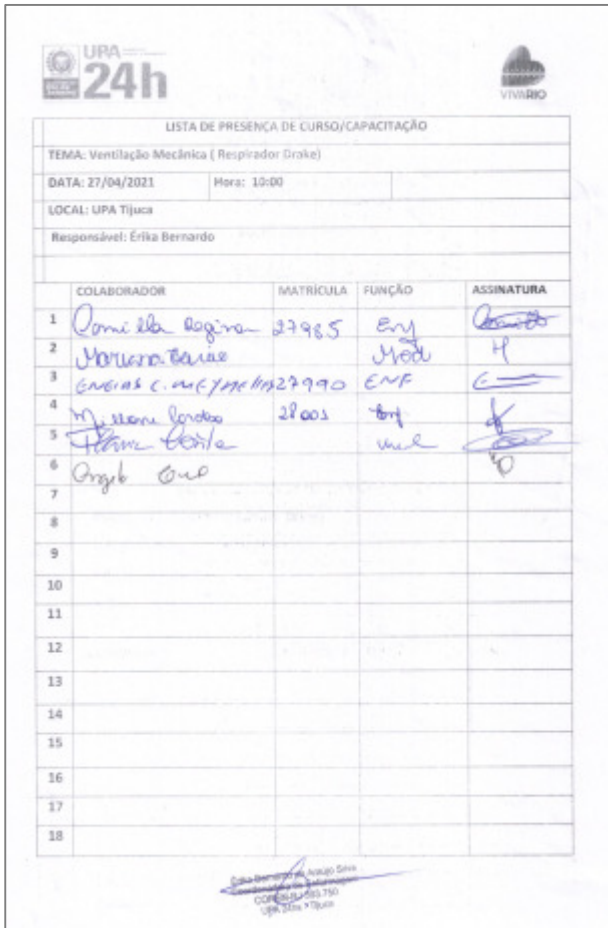 UPA
24h
VIVARIO
LISTA DE PRESENÇA DE CURSO/CAPACITAÇÃO
TEMA: Ventilação Mecânica ( Respirador Drake)
DATA: 27/04/2021 Hora: 10:00
LOCAL: UPA Tijuca
Responsável: Érika Bernardo
COLABORADOR MATRÍCULA FUNÇÃO ASSINATURA
1 Camilla Regina 27985 Enf
2 Mariana Med
3 ENEIAS C. 27990 ENF
4 28001 Enf
5
6 Angela
7
8
9
10
11
12
13
14
15
16
17
18
Bernardo de Araujo Silva
Coordenadora de Enfermagem
UPA 24hs - Tijuca